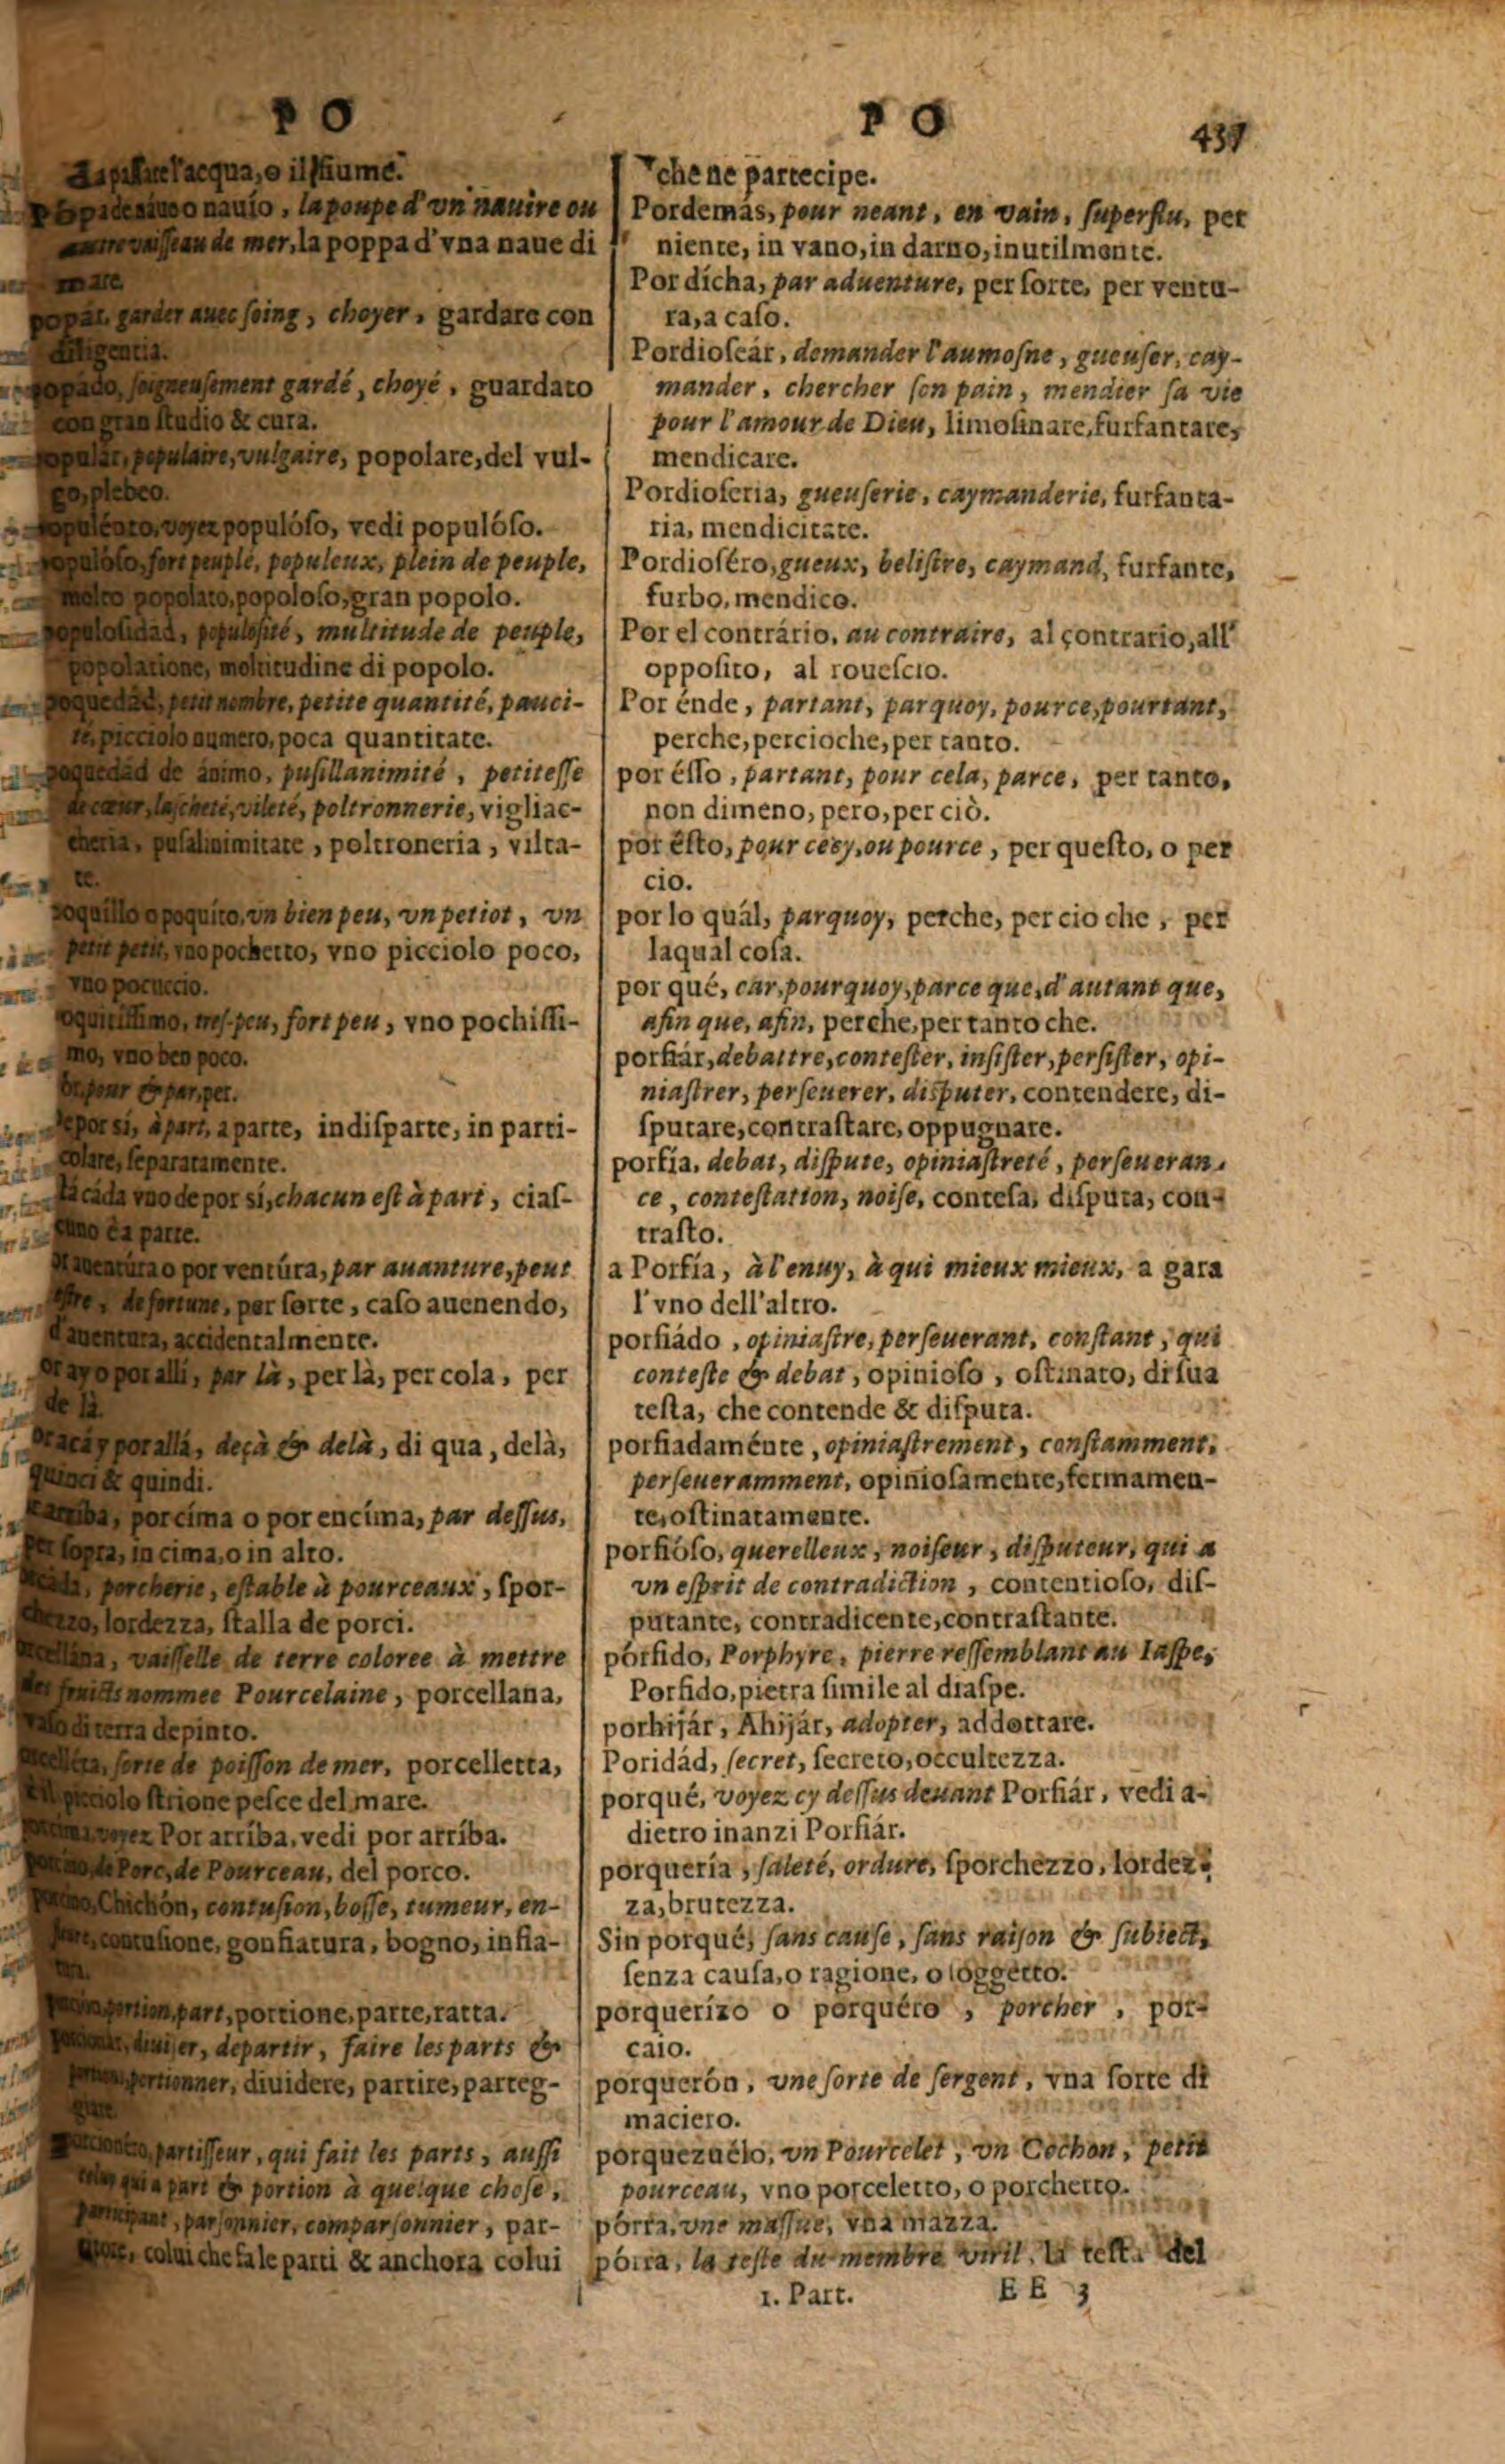 P O
l'acqua, o il fiume.
o nauío, la poupe d'vn nauire ou
vaiſſeau de mer, la poppa d'vna naue di
mare.
popár, garder auec ſoing, choyer, gardare con
diligentia.
popádo, ſoigneuſement gardé, choyé, guardato
con gran ſtudio & cura.
populár, populaire, vulgaire, popolare, del vul-
go, plebeo.
voyez populóſo, vedi populóſo.
populóſo, fort peuplé, populeux, plein de peuple,
molto popolato, popoloſo, gran popolo.
populoſidád, populoſité, multitude de peuple,
popolatione, moltitudine di popolo.
poquedád, petit nombre, petite quantité, pauci-
té, picciolo numero, poca quantitate.
poquedád de ánimo, puſillanimité, petiteſſe
de cœur, laſcheté, vileté, poltronnerie, vigliac-
cheria, puſalinimitate, poltroneria, vilta-
te.
poquíllo o poquíto, vn bien peu, vn petiot, vn
petit petit, vno pochetto, vno picciolo poco,
vno pocuccio.
tres-peu, fort peu, vno pochiſſi-
mo, vno ben poco.
pour & par, per.
de por sí, à part, a parte, indiſparte, in parti-
colare, ſeparatamente.
cáda vno de por sí, chacun eſt à part, ciaſ-
cuno è a parte.
o por ventúra, par auanture, peut
eſtre, de fortune, per ſorte, caſo auenendo,
d'auentura, accidentalmente.
o por allí, par là, per là, per cola, per
de là.
y por allá, deçà & delà, di qua, delà,
quinci & quindi.
arríba, por címa o por encíma, par deſſus,
per ſopra, in cima, o in alto.
porcherie, eſtable à pourceaux, ſpor-
chezzo, lordezza, ſtalla de porci.
vaiſſelle de terre coloree à mettre
des fruicts nommee Pourcelaine, porcellana,
vaſo di terra depinto.
ſorte de poiſſon de mer, porcelletta,
picciolo ſtrione peſce del mare.
voyez Por arríba, vedi por arríba.
de Porc, de Pourceau, del porco.
Chichón, contuſion, boſſe, tumeur, en-
contuſione, gonfiatura, bogno, infia-
portion, part, portione, parte, ratta.
diuiſer, departir, faire les parts &
portionner, diuidere, partire, parteg-
partiſſeur, qui fait les parts, auſſi
qui a part & portion à quelque choſe,
participant, parſonnier, comparſonnier, par-
colui che fa le parti & anchora colui
P O
437
che ne partecipe.
Pordemás, pour neant, en vain, ſuperflu, per
niente, in vano, in darno, inutilmente.
Por dícha, par aduenture, per ſorte, per ventu-
ra, a caſo.
Pordioſeár, demander l'aumoſne, gueuſer, cay-
mander, chercher ſon pain, mendier ſa vie
pour l'amour de Dieu, limoſinare, furfantare,
mendicare.
Pordioſeria, gueuſerie, caymanderie, furfanta-
ria, mendicitate.
Pordioſéro, gueux, beliſtre, caymand, furfante,
furbo, mendico.
Por el contrário, au contraire, al contrario, all'
oppoſito, al roueſcio.
Por énde, partant, parquoy, pource, pourtant,
perche, percioche, per tanto.
por éſſo, partant, pour cela, parce, per tanto,
non dimeno, pero, per ciò.
por éſto, pour cecy, ou pource, per queſto, o per
cio.
por lo quál, parquoy, perche, per cio che, per
laqual coſa.
por qué, car, pourquoy, parce que, d'autant que,
afin que, afin, perche, per tanto che.
porfiár, debattre, conteſter, inſiſter, perſiſter, opi-
niaſtrer, perſeuerer, diſputer, contendere, di-
ſputare, contraſtare, oppugnare.
porfía, debat, diſpute, opiniaſtreté, perſeueran-
ce, conteſtation, noiſe, conteſa, diſputa, con-
traſto.
a Porfía, à l'enuy, à qui mieux mieux, a gara
l'vno dell'altro.
porfiádo, opiniaſtre, perſeuerant, conſtant, qui
conteſte & debat, opinioſo, oſtinato, di ſua
teſta, che contende & diſputa.
porfiadaménte, opiniaſtrement, conſtamment,
perſeueramment, opinioſamente, fermamen-
te, oſtinatamente.
porfióſo, querelleux, noiſeur, diſputeur, qui a
vn eſprit de contradiction, contentioſo, diſ-
putante, contradicente, contraſtante.
pórfido, Porphyre, pierre reſſemblant au Iaſpe,
Porfido, pietra ſimile al diaſpe.
porhijár, Ahijár, adopter, addottare.
Poridád, ſecret, ſecreto, occultezza.
porqué, voyez cy deſſus deuant Porfiár, vedi a-
dietro inanzi Porfiár.
porquería, ſaleté, ordure, ſporchezzo, lordez-
za, brutezza.
Sin porqué, ſans cauſe, ſans raiſon & ſubiect,
ſenza cauſa, o ragione, o ſoggetto.
porquerízo o porquéro, porcher, por-
caio.
porquerón, vne ſorte de ſergent, vna ſorte di
maciero.
porquezuélo, vn Pourcelet, vn Cochon, petit
pourceau, vno porceletto, o porchetto.
pórra, vne maſſue, vna mazza.
pórra, la teſte du membre viril, la teſta del
1. Part. E E 3